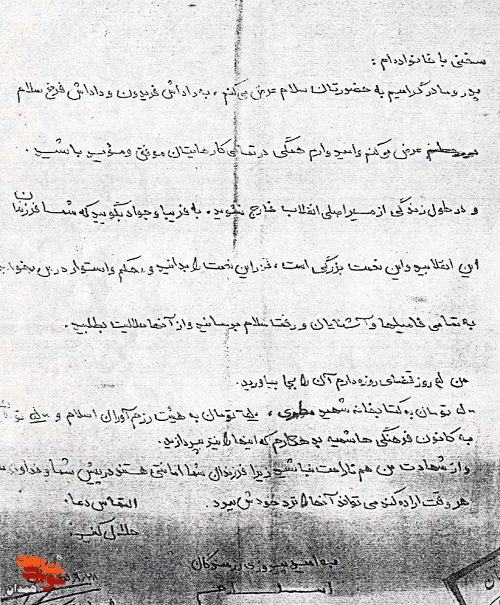 سخنی با خانواده‌ام :
پدر و مادر گرامیم به حضورتان سلام عرض می‌کنم ، به داداش فریدون و داداش فرخ سلام
عرض می‌کنم و امیدوارم همگی در تمامی کارهایتان موفق و مؤید باشید .
و در طول زندگی از مسیر اصلی انقلاب خارج نشوید. به فریبا و جواد بگویید که شما فرزندان
این انقلابید و این نعمت بزرگی است ، قدر این نعمت را بدانید و محکم و استوار درس بخوانید
به تمامی فامیلها و آشنایان و رفقا سلام برسانید و از آنها حلالیت بطلبید.
من روز قضای روزه دارم آن را بجا بیاورید.
تومان به کتابخانه شهید مطهری ، تومان به هیئت رزم آوران اسلام و
به کانون فرهنگی هاشمیه بدهکارم که اینها را نیز بپردازید.
و از شهادت من هم ناراحت نباشید زیرا فرزندان شما امانتی هستند در پیش شما و خداوند
هر وقت اراده کند می تواند آنها را نزد خودش ببرد.
التماس دعا
حلالم کنید
به امید پیروزی رزمندگان
اسلام